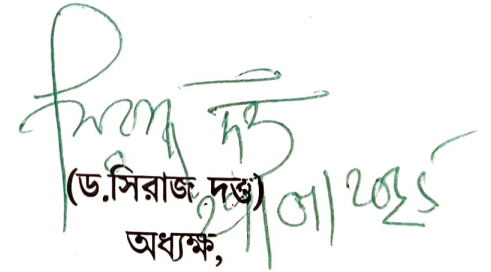 সিরাজ দত্ত
(ড.সিরাজ দত্ত)
অধ্যক্ষ,